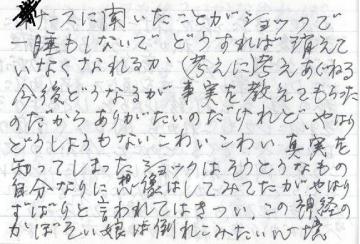 ナースに聞いたことがショックで
一睡もしないで どうすれば消えて
いなくなれるか (考えに)考えあぐねる
今後どうなるが事実を教えてもらった
のだからありがたいのだけれど、やはり
どうしようもないこわいこわい 真実を
知ってしまったショックはそうとうなもの
自分なりに 悪後はしてみてたが やはり
ずばりと言われてはきつい、この神経の
かぼそい娘は倒れこみたい心境